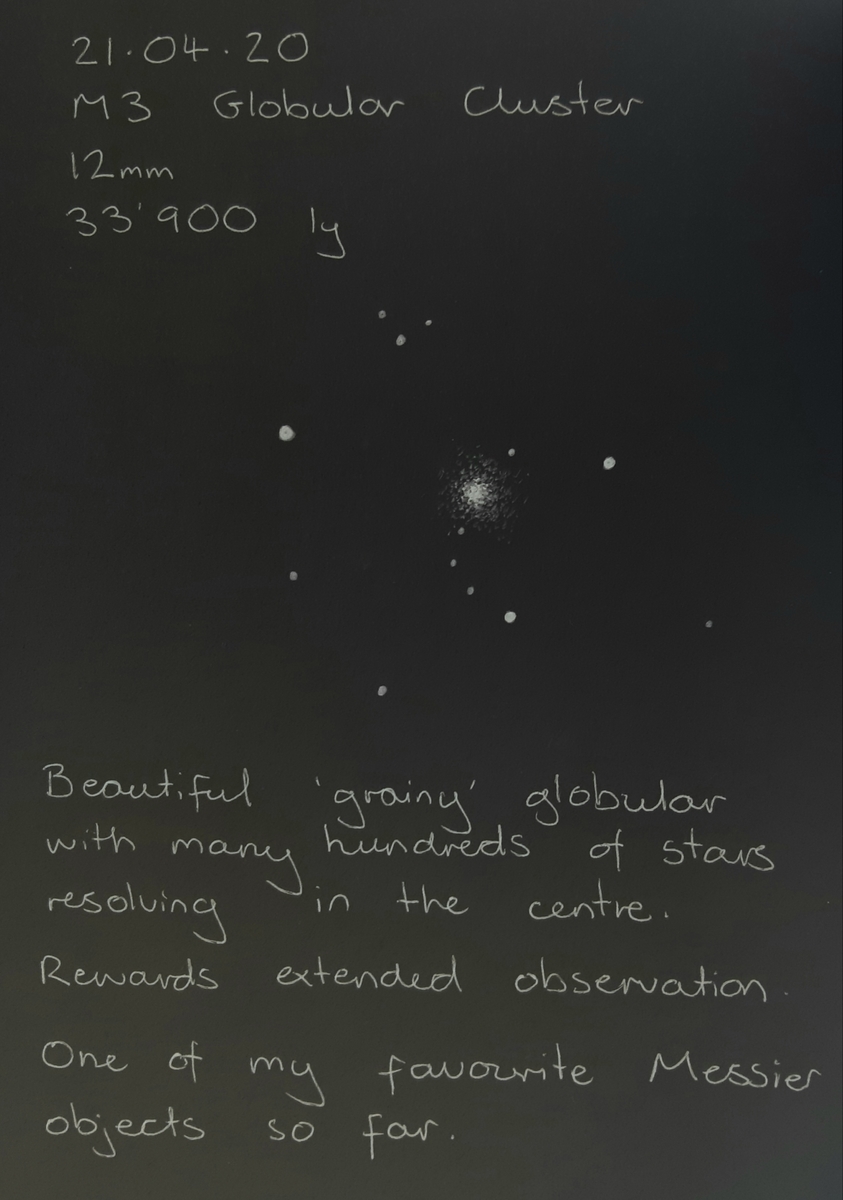 21.04.20
M3 Globular Cluster
12mm
33'900 ly
Beautiful 'grainy' globular
with many hundreds of stars
resolving in the centre.
Rewards extended observation.
One of my favourite Messier
objects so far.